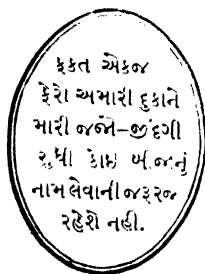 ફક્ત એકજ
ફેરો અમારી દુકાને
મારી જજો-જીંદગી
સુધી કોઇ બીજાનું
નામ લેવાની જરૂરજ
રહેશે નહી.